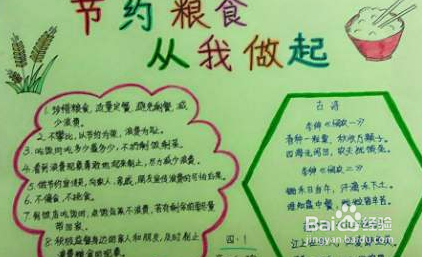 节约粮食
从我做起
1. 珍惜粮食,适量定餐,避免剩餐,减
少浪费。
2. 不攀比,以节约为荣,浪费为耻。
3. 吃饭时吃多少盛多少,不扔剩饭剩菜。
4. 看到浪费现象勇敢地起来制止,尽力减少浪费。
5. 做节约宣传员,向家人、亲戚、朋友宣传浪费的可怕后果。
6. 不偏食,不挑食。
7. 到饭店吃饭时,点饭点菜不浪费,若有剩余的要尽量
带回家。
8. 积极监督身边的亲人和朋友,及时制止
浪费粮食的现象。
四·1
古诗
李绅《悯农一》
春种一粒粟,秋收万颗子。
四海无闲田,农夫犹饿死。
李绅《悯农二》
锄禾日当午,汗滴禾下土。
谁知盘中餐,粒粒皆辛苦。
江上
Baidu经验
jingyan.baidu.com